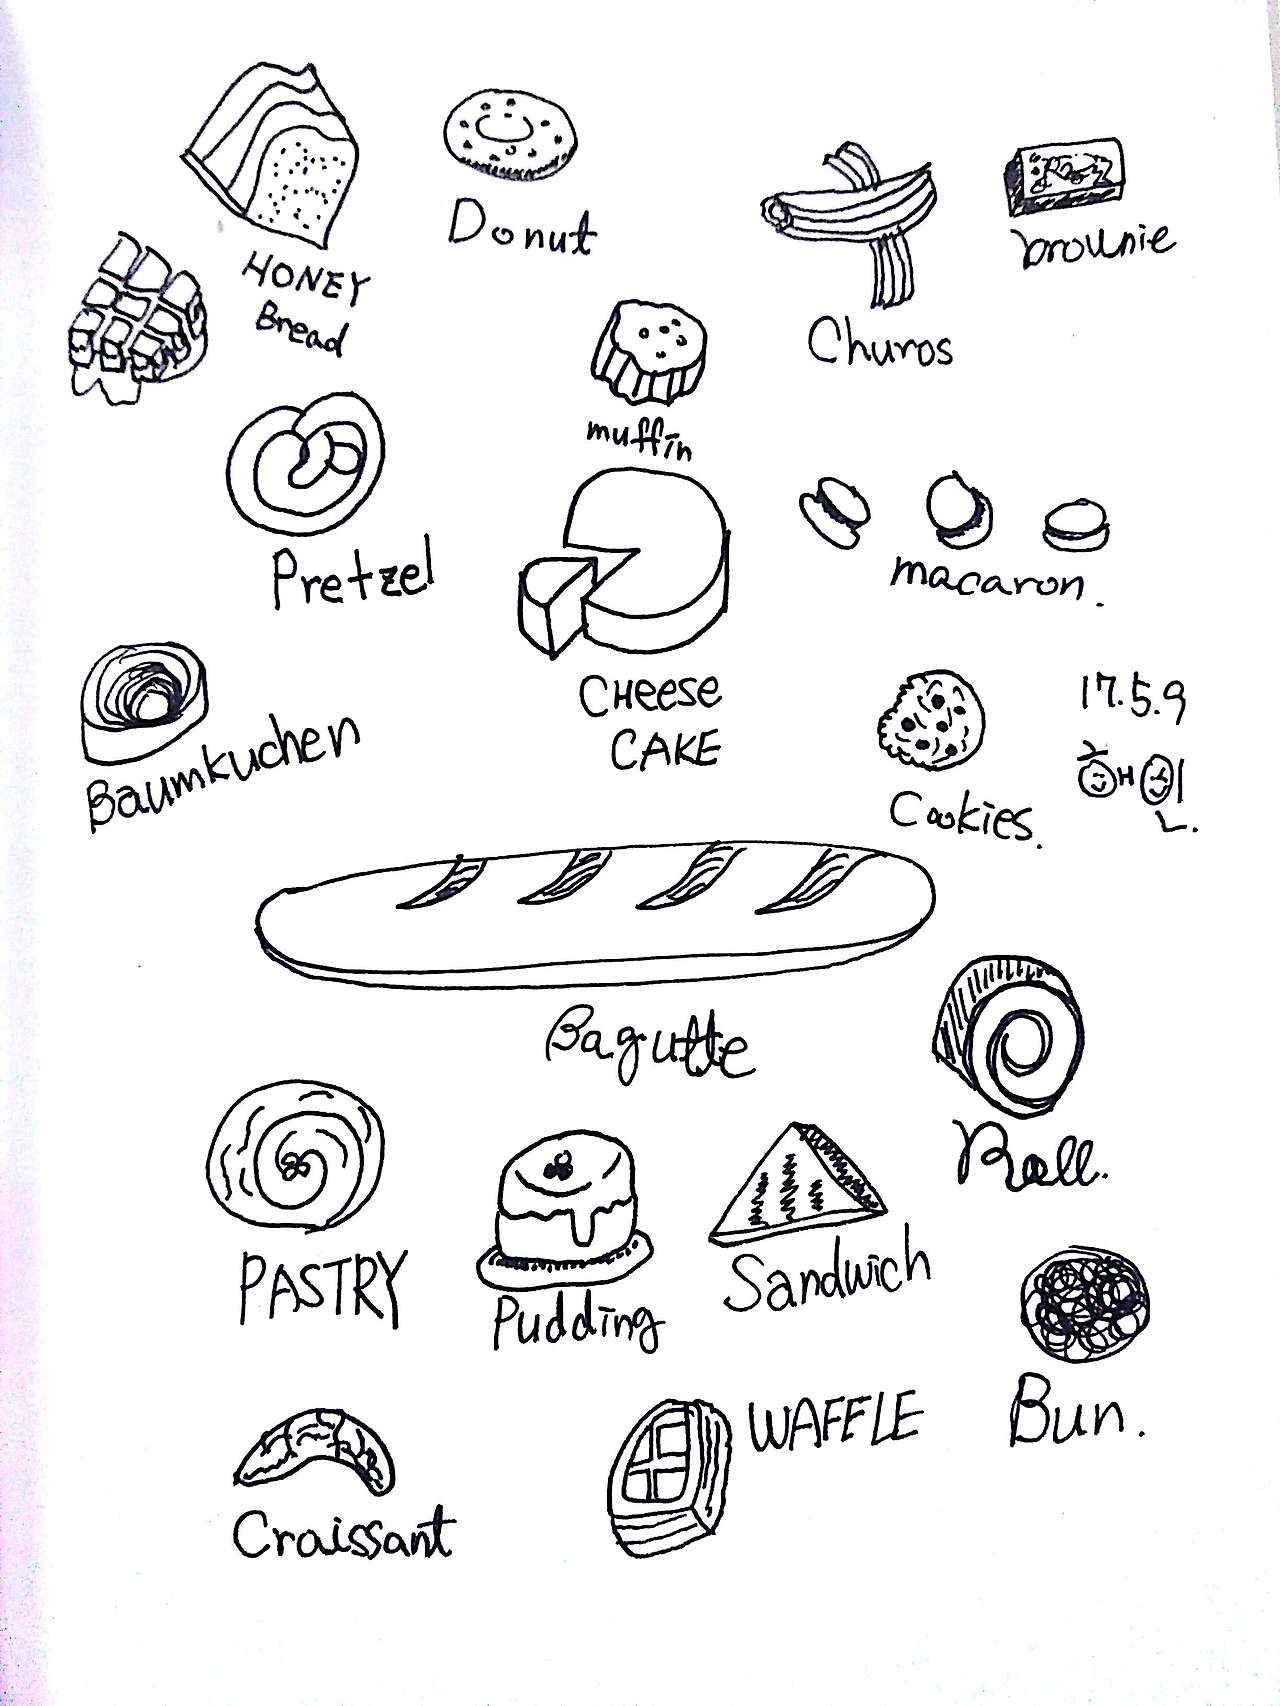 Donut
HONEY
Bread
brownie
Churos
muffin
Pretzel
macaron.
CHEESE
CAKE
17.5.9
Baumkuchen
해인
Cookies.
Bagutte
Roll.
PASTRY
Pudding
Sandwich
Bun.
WAFFLE
Craissant